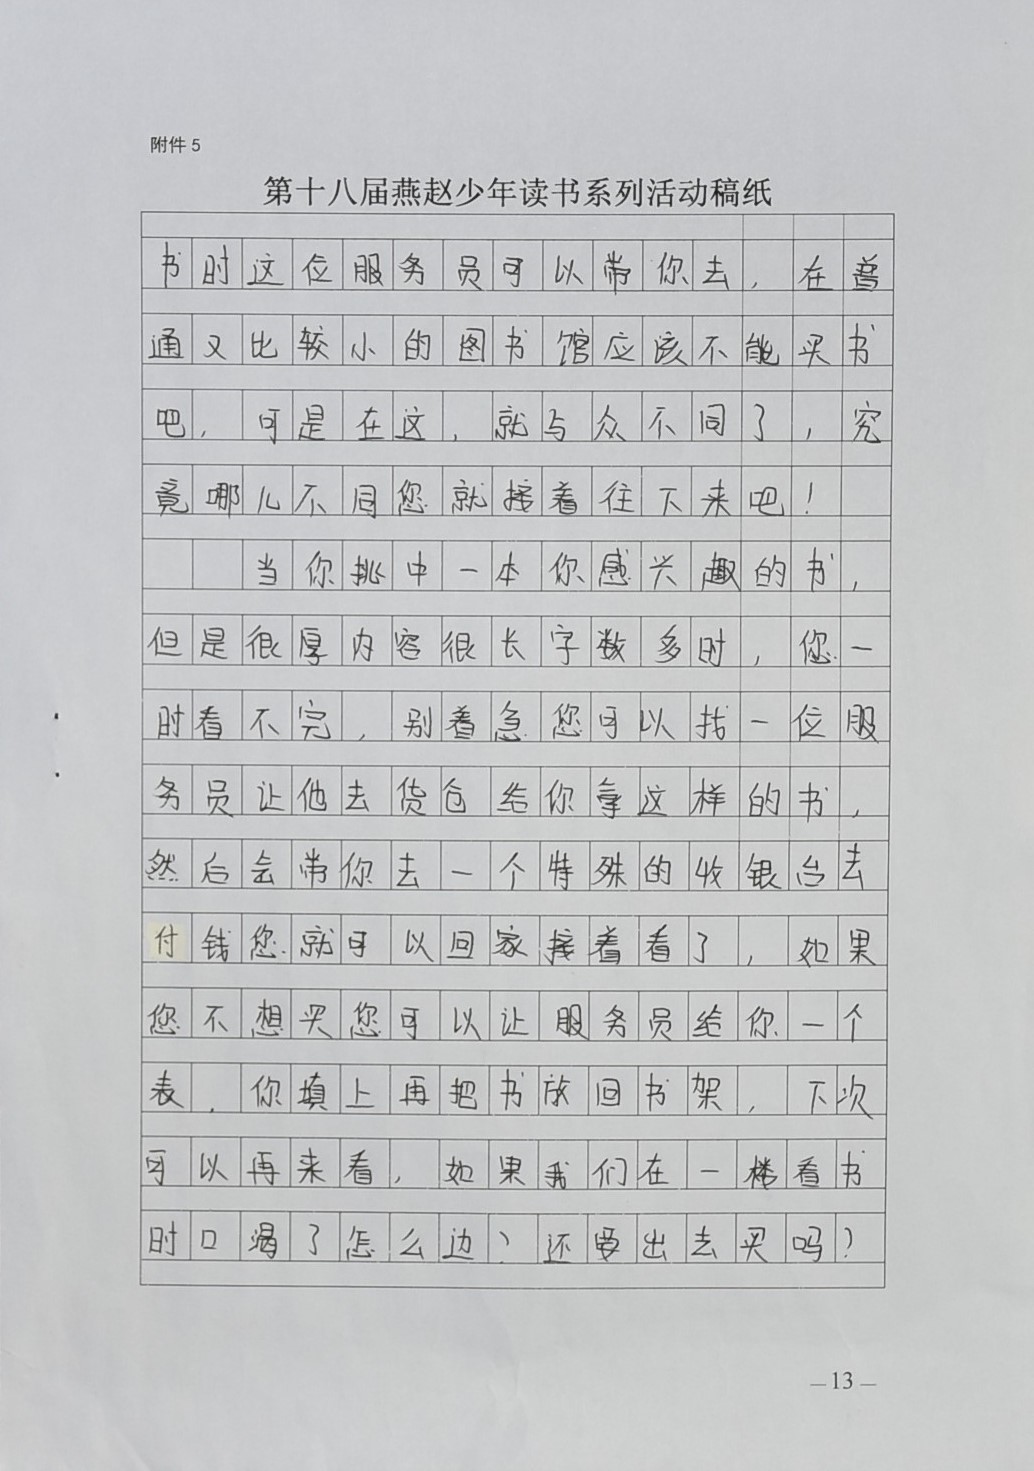 附件5
第十八届燕赵少年读书系列活动稿纸
书时这位服务员可以带你去，在普
通又比较小的图书馆应该不能买书
吧，可是在这，就与众不同了，究
竟哪儿不同您就接着往下来吧！
当你挑中一本你感兴趣的书，
但是很厚内容很长字数多时，您一
时看不完，别着急您可以找一位服
务员让他去货仓给你拿这样的书，
然后会带你去一个特殊的收银台去
付钱您就可以回家接着看了，如果
您不想买您可以让服务员给你一个
表，你填上再把书放回书架，下次
可以再来看，如果我们在一楼看书
时口渴了怎么边？还要出去买吗？
—13—